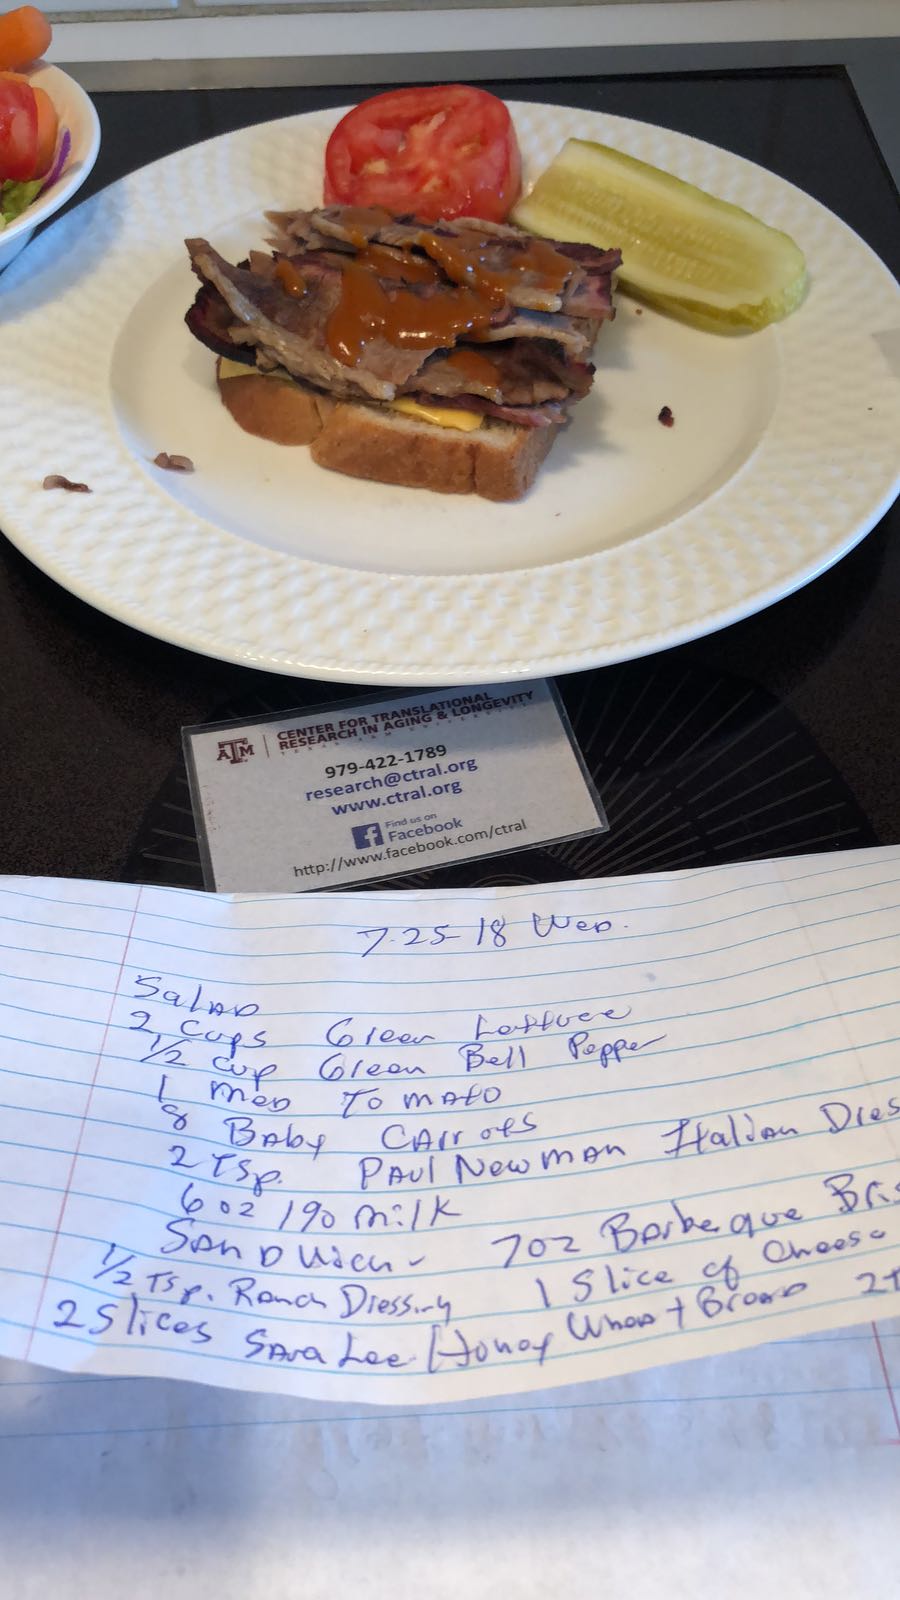 ATM
CENTER FOR TRANSLATIONAL
RESEARCH IN AGING & LONGEVITY
TEXAS A&M UNIVERSITY
979-422-1789
research@ctral.org
www.ctral.org
Find us on
Facebook
http://www.facebook.com/ctral
7.25 18 Wed.
Salad
2 Cups Green Lettuce
1/2 cup Green Bell Pepper
1 Med Tomato
8 Baby Carrots
2 Tsp. Paul Newman Italian Dres
6 oz 1% Milk
Sandwich - 7oz Barbeque Bris
1/2 Tsp. Ranch Dressing 1 Slice of Cheese
2 Slices Sara Lee Honey Wheat Bread 2 T